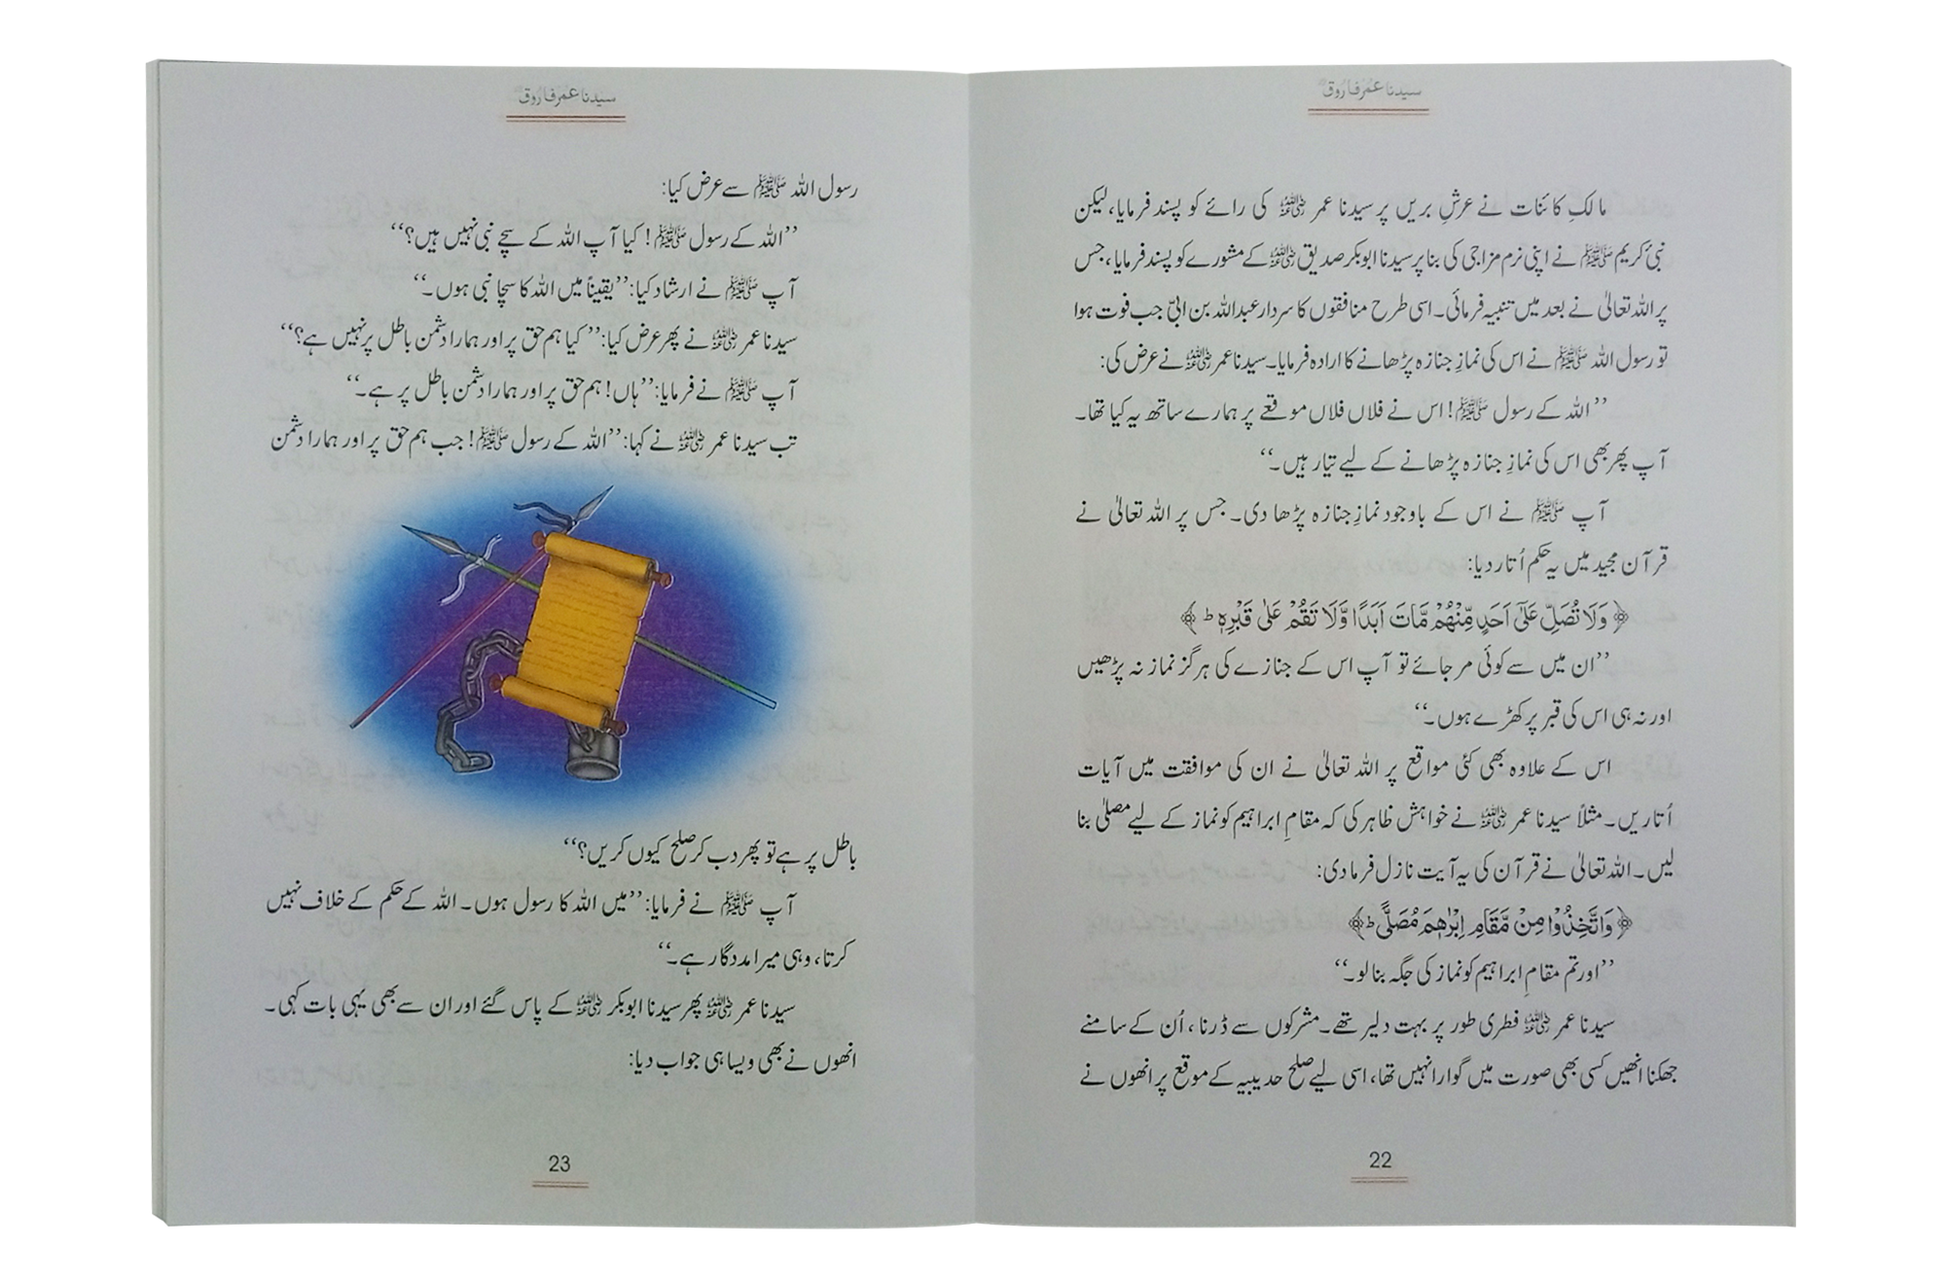 سیدنا عمر فاروق
مالکِ کائنات نے عرشِ بریں پر سیدنا عمر رضی اللہ عنہ کی رائے کو پسند فرمایا، لیکن
نبیٔ کریم ﷺ نے اپنی نرم مزاجی کی بنا پر سیدنا ابوبکر صدیق رضی اللہ عنہ کے مشورے کو پسند فرمایا، جس
پر اللہ تعالیٰ نے بعد میں تنبیہ فرمائی۔ اسی طرح منافقوں کا سردار عبداللہ بن ابیّ جب فوت ہوا
تو رسول اللہ ﷺ نے اس کی نمازِ جنازہ پڑھانے کا ارادہ فرمایا۔ سیدنا عمر رضی اللہ عنہ نے عرض کی:
’’اللہ کے رسول ﷺ! اس نے فلاں فلاں موقعے پر ہمارے ساتھ یہ کیا تھا۔
آپ پھر بھی اس کی نمازِ جنازہ پڑھانے کے لیے تیار ہیں۔‘‘
آپ ﷺ نے اس کے باوجود نمازِ جنازہ پڑھا دی۔ جس پر اللہ تعالیٰ نے
قرآن مجید میں یہ حکم اُتار دیا:
﴿وَلَا تُصَلِّ عَلٰٓى اَحَدٍ مِّنْهُمْ مَّاتَ اَبَدًا وَّلَا تَقُمْ عَلٰى قَبْرِهٖ ط﴾
’’ان میں سے کوئی مر جائے تو آپ اس کے جنازے کی ہرگز نماز نہ پڑھیں
اور نہ ہی اس کی قبر پر کھڑے ہوں۔‘‘
اس کے علاوہ بھی کئی مواقع پر اللہ تعالیٰ نے ان کی موافقت میں آیات
اُتاریں۔ مثلاً سیدنا عمر رضی اللہ عنہ نے خواہش ظاہر کی کہ مقامِ ابراہیم کو نماز کے لیے مصلیٰ بنا
لیں۔ اللہ تعالیٰ نے قرآن کی یہ آیت نازل فرما دی:
﴿وَاتَّخِذُوْا مِنْ مَّقَامِ اِبْرٰهٖمَ مُصَلًّى ط﴾
’’اور تم مقامِ ابراہیم کو نماز کی جگہ بنالو۔‘‘
سیدنا عمر رضی اللہ عنہ فطری طور پر بہت دلیر تھے۔ مشرکوں سے ڈرنا، اُن کے سامنے
جھکنا انھیں کسی بھی صورت میں گوارا نہیں تھا، اسی لیے صلح حدیبیہ کے موقع پر انھوں نے
22
سیدنا عمر فاروق
رسول اللہ ﷺ سے عرض کیا:
’’اللہ کے رسول ﷺ! کیا آپ اللہ کے سچے نبی نہیں ہیں؟‘‘
آپ ﷺ نے ارشاد کیا: ’’یقیناً میں اللہ کا سچا نبی ہوں۔‘‘
سیدنا عمر رضی اللہ عنہ نے پھر عرض کیا: ’’کیا ہم حق پر اور ہمارا دشمن باطل پر نہیں ہے؟‘‘
آپ ﷺ نے فرمایا: ’’ہاں! ہم حق پر اور ہمارا دشمن باطل پر ہے۔‘‘
تب سیدنا عمر رضی اللہ عنہ نے کہا: ’’اللہ کے رسول ﷺ! جب ہم حق پر اور ہمارا دشمن
باطل پر ہے تو پھر دب کر صلح کیوں کریں؟‘‘
آپ ﷺ نے فرمایا: ’’میں اللہ کا رسول ہوں۔ اللہ کے حکم کے خلاف نہیں
کرتا، وہی میرا مددگار ہے۔‘‘
سیدنا عمر رضی اللہ عنہ پھر سیدنا ابوبکر رضی اللہ عنہ کے پاس گئے اور ان سے بھی یہی بات کہی۔
انھوں نے بھی ویسا ہی جواب دیا:
23